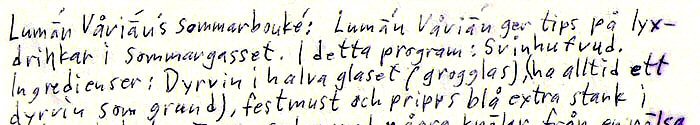 Lumán Våriáń's sommarbouké: Lumáń Våriáń ger tips på lyx-
drinkar i sommargasset. I detta program: Svinhufvud.
Ingredienser: Dyrvin i halva glaset (grogglas), (ha alltid ett
dyrvin som grund), festmust och pripps blå extra stank i
några från en